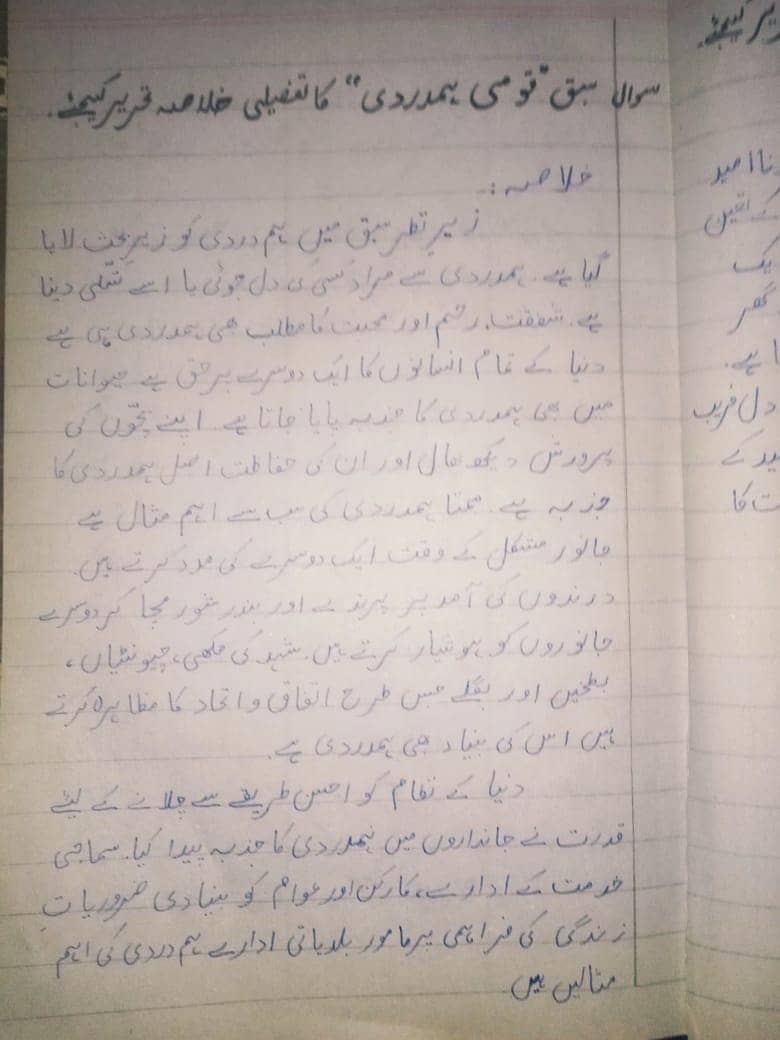 سوال سبق "قومی ہمدردی" کا تفصیلی خلاصہ تحریر کیجئے۔
خلاصہ:
زیرِ نظر سبق میں ہم دردی کو زیرِ بحث لایا
گیا ہے۔ ہمدردی سے مراد کسی کی دل جوئی یا اسے تسلی دینا
ہے۔ شفقت، رحم اور محبت کا مطلب بھی ہمدردی ہی ہے
دنیا کے تمام انسانوں کا ایک دوسرے پر حق ہے حیوانات
میں بھی ہمدردی کا جذبہ پایا جاتا ہے۔ اپنے بچّوں کی
پرورش دیکھ بھال اور ان کی حفاظت اصل ہمدردی کا
جذبہ ہے۔ ممتا ہمدردی کی سب سے اہم مثال ہے
جانور مشکل کے وقت ایک دوسرے کی مدد کرتے ہیں۔
درندوں کی آمد پر پرندے اور بندر شور مچا کر دوسرے
جانوروں کو ہوشیار کرتے ہیں۔ شہد کی مکھی، چیونٹیاں،
بطخیں اور بگلے جس طرح اتفاق و اتحاد کا مظاہرہ کرتے
ہیں اس کی بنیاد بھی ہمدردی ہے۔
دنیا کے نظام کو احسن طریقے سے چلانے کے لیئے
قدرت نے جانداروں میں ہمدردی کا جذبہ پیدا کیا۔ سماجی
خدمت کے ادارے، کارکن اور عوام کو بنیادی ضروریاتِ
زندگی کی فراہمی پر مامور بلدیاتی ادارے ہم دردی کی اہم
مثالیں ہیں
نا امید
یک
گھر
ا ہے۔
دل فریب
ید کے
ت کا